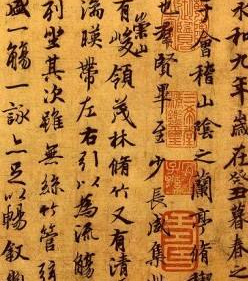 和九年歲在癸丑暮春之
于會稽山陰之蘭亭脩稧
也羣賢畢至少長咸集
有崇山峻領茂林脩竹又有清
湍暎帶左右引以為流觴
列坐其次雖無絲竹管弦
盛一觴一詠亦足以暢叙